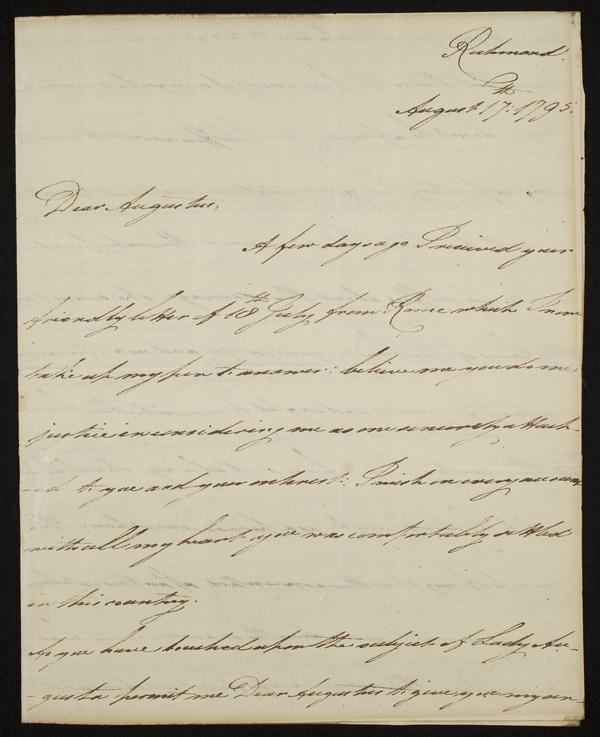 Richmond.
August. 17:th 1795.
Dear Augustus,
A few days ago I received your
friendly letter of 18th July from Rome which I now
take up my pen to answer: believe me you do me
justice in considering me as one sincerely attach-
-ed to you and your interest: I wish on every account
with all my heart you was comfortably settled
in this country.
As you have touched upon the subject of Lady Au-
-gusta permit me Dear Augustus to give you my